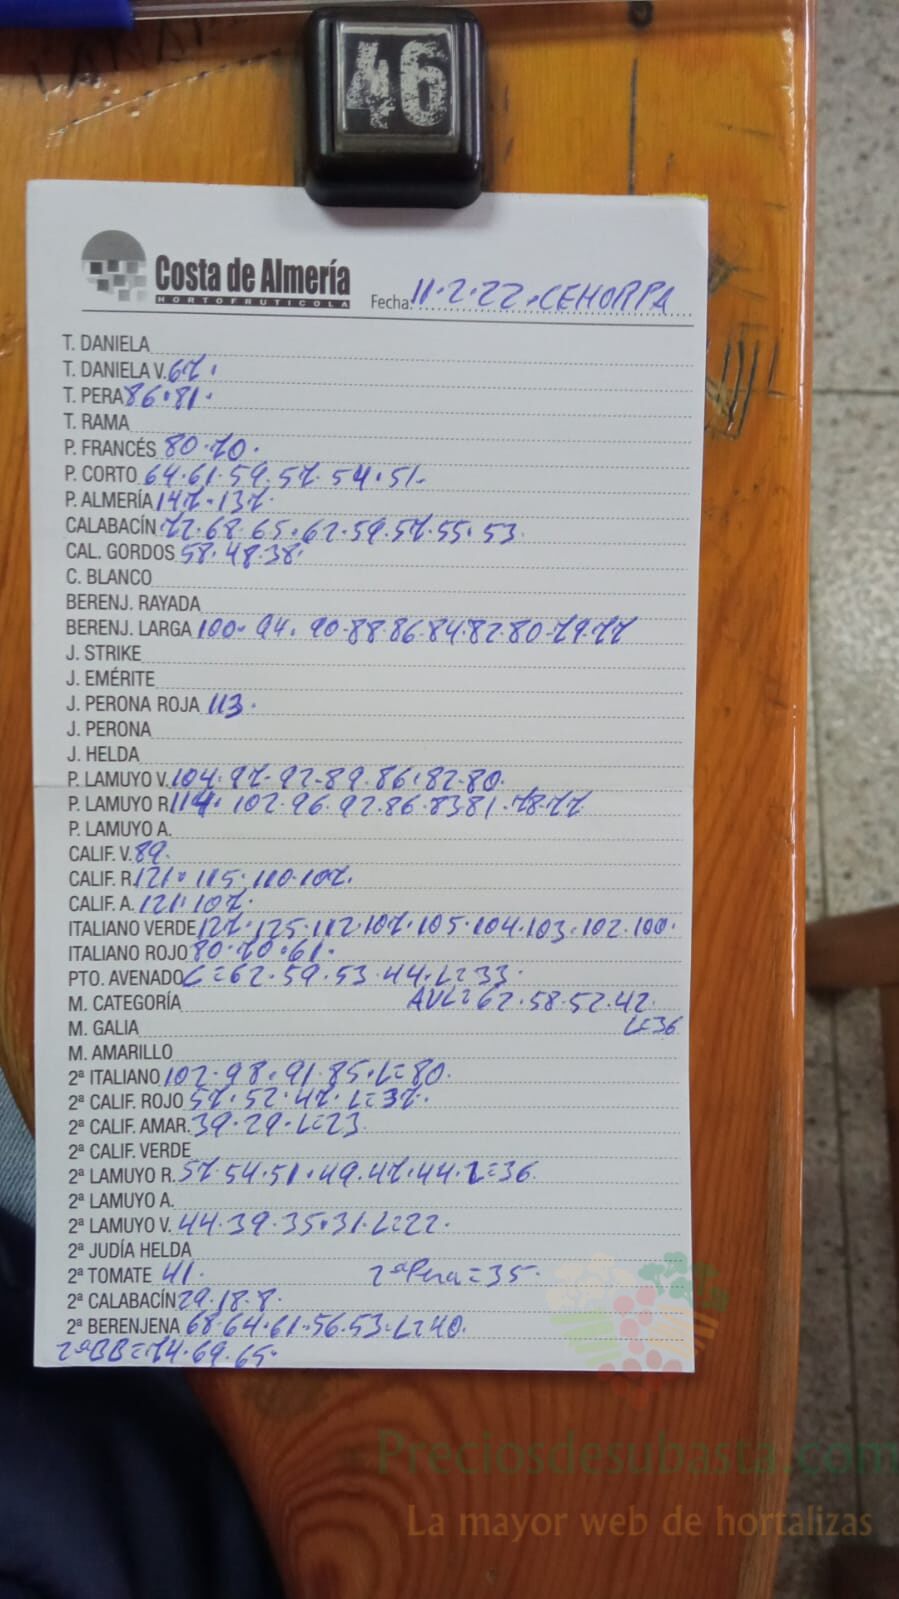 46
Costa de Almería
HORTOFRUTICOLA
Fecha: 11.2.22.CEHORPA
T. DANIELA
T. DANIELA V. 67.
T. PERA 86.81.
T. RAMA
P. FRANCÉS 80.70.
P. CORTO 64.61.59.57.54.51.
P. ALMERÍA 147.137.
CALABACÍN 72.68.65.62.59.57.55.53.
CAL. GORDOS 58.48.38.
C. BLANCO
BERENJ. RAYADA
BERENJ. LARGA 100.94.90.88.86.84.82.80.79.77
J. STRIKE
J. EMÉRITE
J. PERONA ROJA 113.
J. PERONA
J. HELDA
P. LAMUYO V. 104.97.92.89.86.82.80.
P. LAMUYO R. 114.102.96.92.86.83.81.78.77
P. LAMUYO A.
CALIF. V. 89.
CALIF. R. 121.115.110.107.
CALIF. A. 121.107.
ITALIANO VERDE 127.125.112.107.105.104.103.102.100.
ITALIANO ROJO 80.70.61.
PTO. AVENADO C=62.59.53.44.L=33.
M. CATEGORÍA AVL=62.58.52.42.
M. GALIA L=36
M. AMARILLO
2ª ITALIANO 102.98.91.85.L=80.
2ª CALIF. ROJO 57.52.47.L=37.
2ª CALIF. AMAR. 39.29.L=23.
2ª CALIF. VERDE
2ª LAMUYO R. 57.54.51.49.47.44.L=36.
2ª LAMUYO A.
2ª LAMUYO V. 44.39.35.31.L=22.
2ª JUDÍA HELDA
2ª TOMATE 41. 2ªPera=35.
2ª CALABACÍN 29.18.8.
2ª BERENJENA 68.64.61.56.53.L=40.
2ªBB=74.69.65.
Preciosdesubasta.com
La mayor web de hortalizas